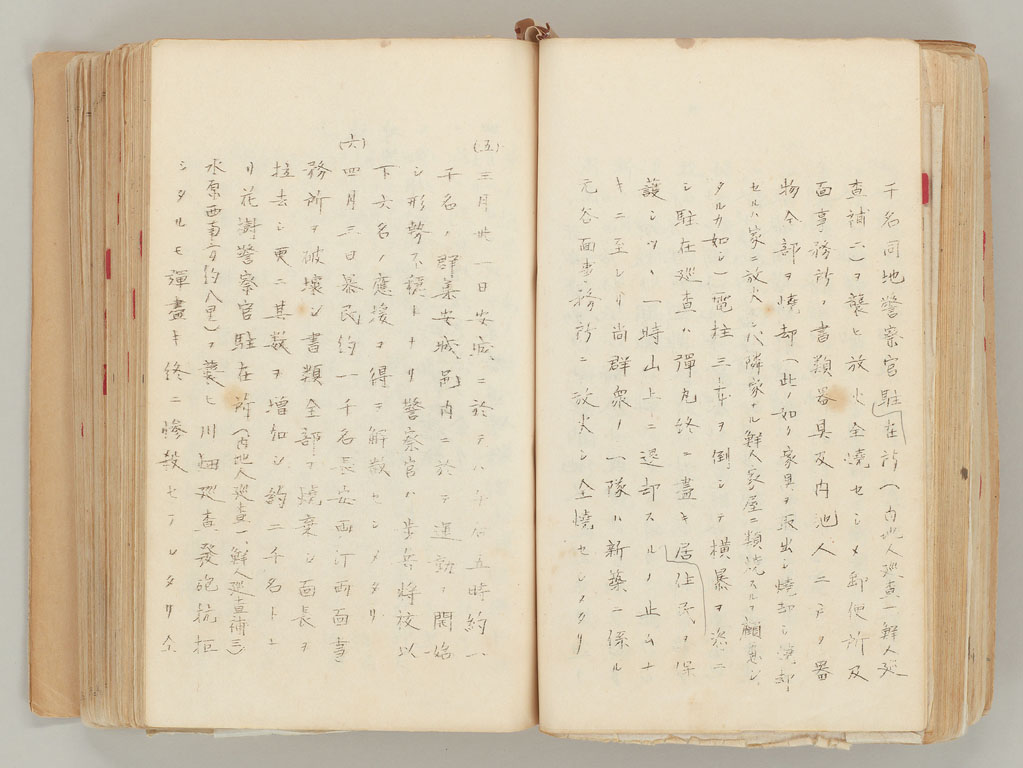 千名同地警察官駐在所(内地人巡査一鮮人巡
査補二)ヲ襲ヒ放火全焼セシメ郵便所及
面事務所ノ書類器具及内地人二戸ヲ番
物全部ヲ焼却(此ノ如ク家具ヲ取出シ焼却シ焼却
セルハ家ニ放火セハ隣家ナル鮮人家屋ニ類焼スルヲ顧慮シ
タルカ如シ)電柱三本ヲ倒シテ横暴ヲ恣ニ
シ駐在巡査ハ彈丸終ニ盡キ居住民ヲ保
護シツヽ一時山上ニ退却スルノ止ムナ
キニ至レリ尚群衆ノ一隊ハ新築ニ係ル
元谷面事務所ニ放火シ全焼セシメタリ
(五)
三月卅一日安城ニ於テハ午后五時約一
千名ノ群集安城邑内ニ於テ運動ノ開始
シ形勢不穏トナリ警察官ハ歩兵将校以
下六名ノ應援ヲ得テ解散セシメタリ
(六)
四月三日暴民約一千名長安面汀面面事
務所ヲ破壊シ書類全部ヲ焼棄シ面長ヲ
拉去シ更ニ其数ヲ増加シ約二千名トナ
リ花樹警察官駐在所(内地人巡査一、鮮人巡査補三)
水原西南方約八里)ヲ襲ヒ川畑巡査發砲抗拒
シタルモ彈盡キ終ニ惨殺セラレタリ仝